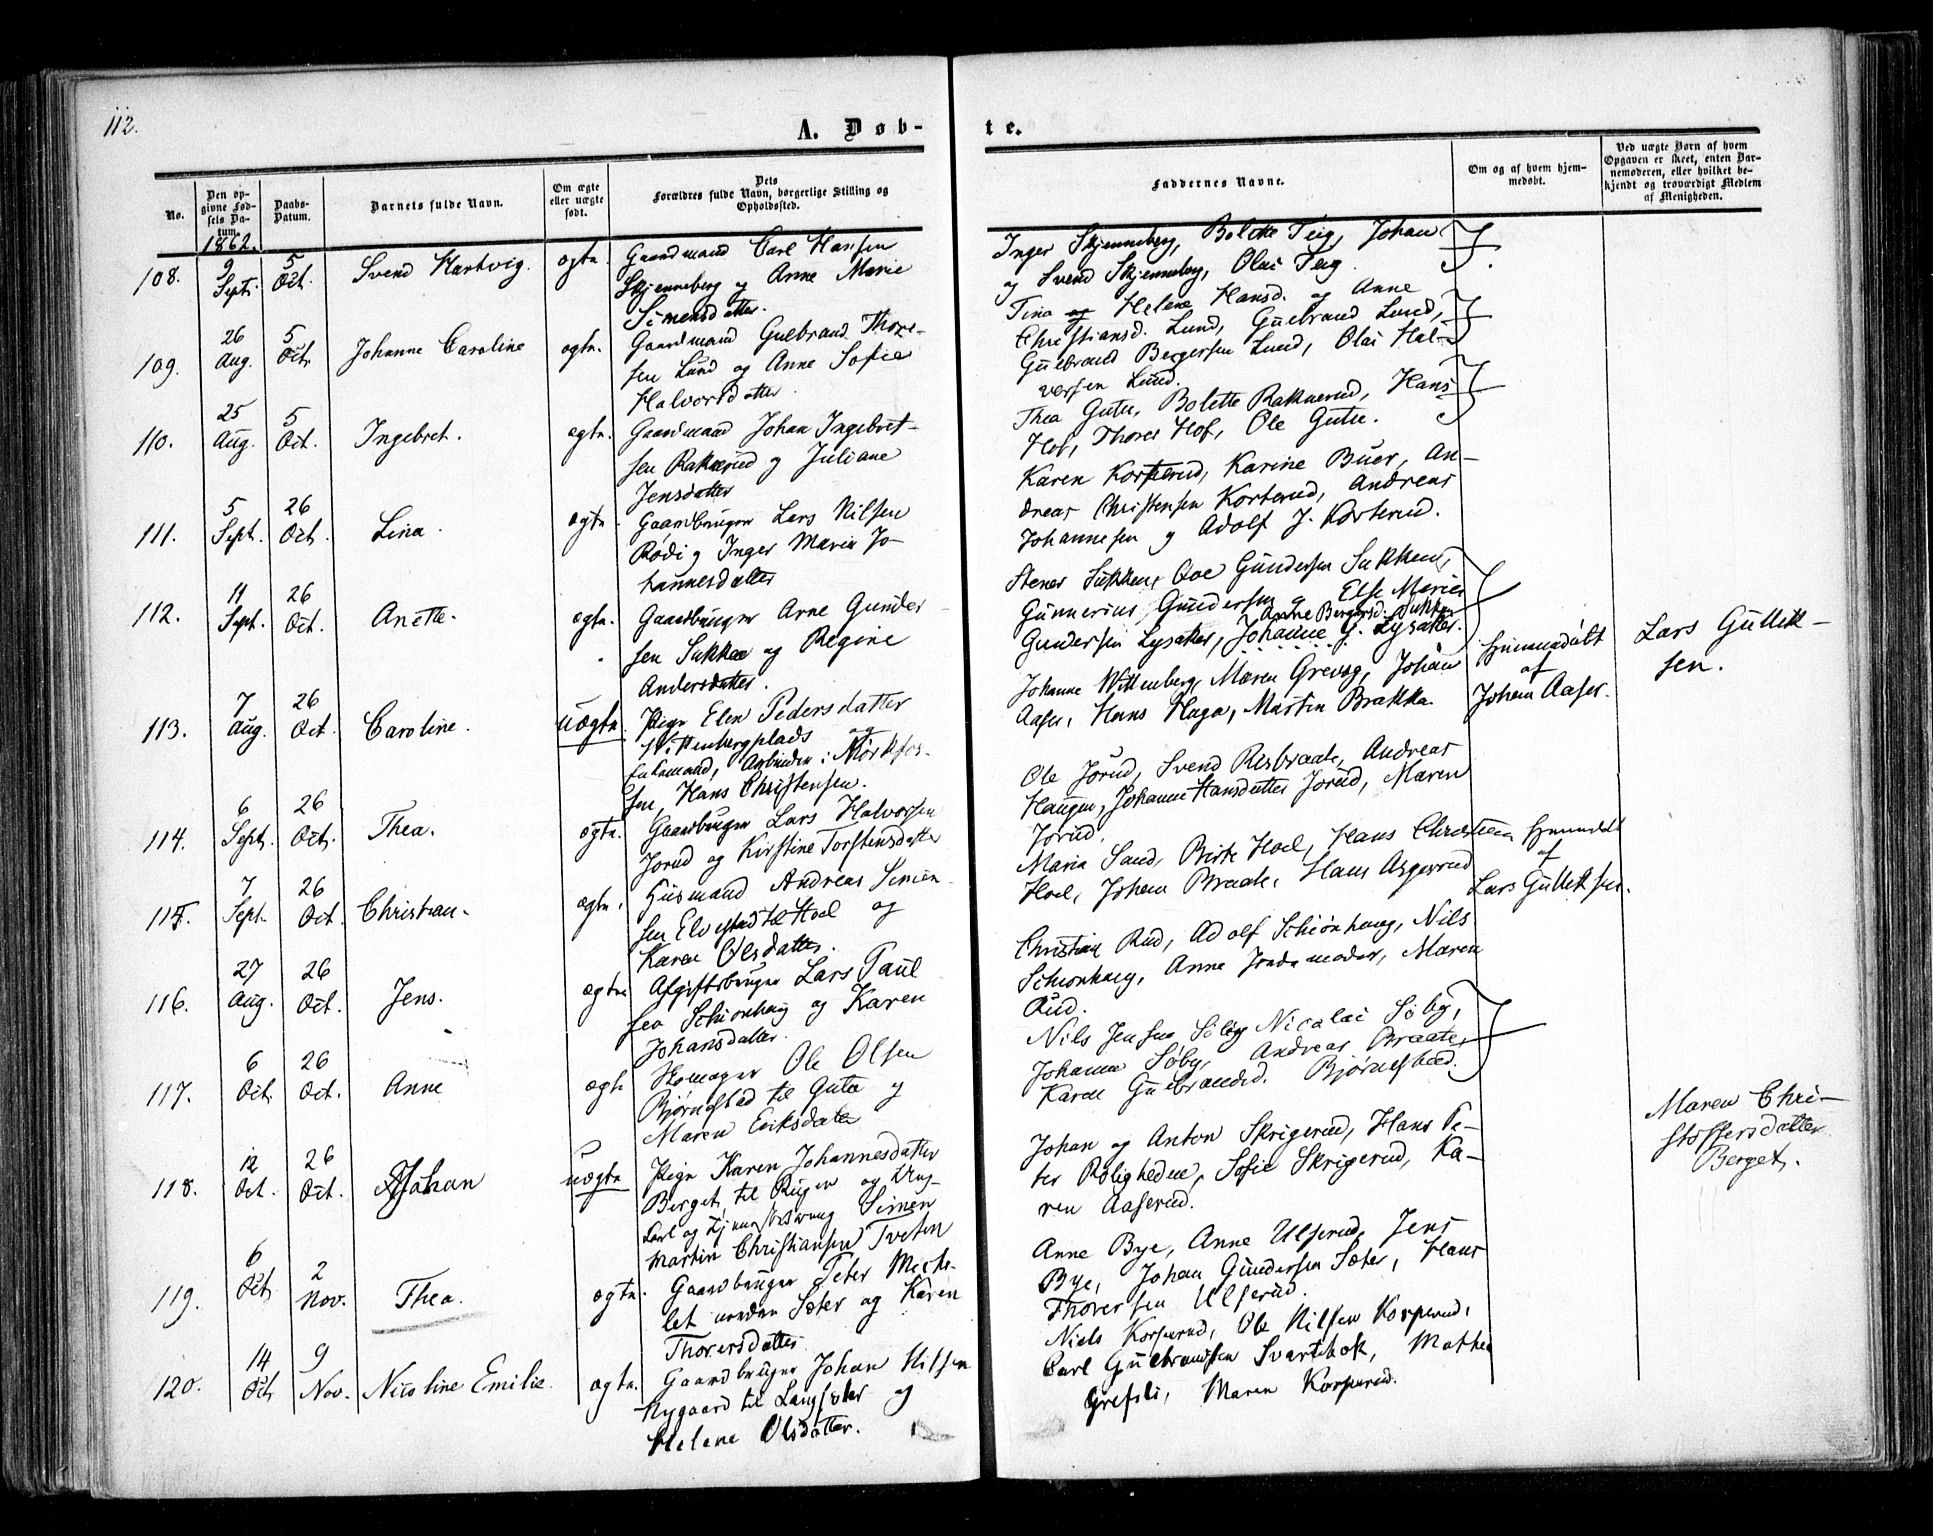 112.
A. Døb-
te.
No.
Den op-
givne Fød-
sels Da-
tum.
1862.
Daabs-
Datum.
Barnets fulde Navn.
Om ægte
eller uægte
født.
Dets
Forældres fulde Navn, borgerlige Stilling og
Opholdssted.
Faddernes Navne.
Om og af hvem hjem-
medøbt.
Ved uægte Børn af hvem
Opgaven er skeet, enten Bar-
nemoderen, eller hvilket be-
kjendt og troværdigt Medlem
af Menigheden.
108.
9
Sept.
5
Oct.
Svend Hartvig.
ægte.
Gaardmand Carl Hansen
Skjenneberg og Anne Marie
Simensdatter.
Inger Skjenneberg, Bolette Teig, Johan
og Svend Skjenneberg, Olai Teig.
109.
26
Aug.
5
Oct.
Johanne Caroline
ægte.
Gaardmand Gulbrand Thore-
sen Lund og Anne Sofie
Halvorsdatter.
Tina og Helene Hansd. og Anne
Christiansd. Lund, Gulbrand Lund,
Gulbrand Bergersen Lund, Olai Hal-
versen Lund.
110.
25
Aug.
5
Oct.
Ingebret.
ægte.
Gaardmand Johan Ingebret-
sen Raknerud og Juliane
Jensdatter
Thea Gutu, Bolette Raknerud, Hans
Hof, Thorer Hof, Ole Gutu.
111.
5
Sept.
26
Oct.
Lina.
ægte.
Gaardbruger Lars Nilsen
Rødi og Inger Maria Jo-
hannesdatter
Karen Korterud, Karine Buer, An-
dreas Christensen Korterud, Andreas
Johannesen og Adolf J. Korterud.
112.
11
Sept.
26
Oct.
Anette.
ægte.
Gaardbruger Arne Gunder-
sen Sukken og Regine
Andersdatter.
Stener Sukken, Ove Gundersen Sukken,
Gunnerius Gundersen og Else Marie
Anne Bergersd. Sukken
Gundersen Lysaker, Johanne G. Lysaker.
113.
7
Aug.
26
Oct.
Caroline.
uægte.
Pige Elen Pedersdatter
Wittenbergplads og
Enkemand, Arbeider i Mørkfos-
sen, Hans Christensen.
Johanne Wittenberg, Maren Grevog, Johan
Aaser, Hans Haga, Martin Brakka.
Hjemmedøbt
af
Johan Aaser.
Lars Gullik-
sen.
114.
6
Sept.
26
Oct.
Thea.
ægte.
Gaardbruger Lars Halvorsen
Jorud og Kirstine Torstensdatter
Ole Jorud, Svend Risbraate, Andreas
Haugen, Johanne Hansdatter Jorud, Maren
Jorud.
115.
7
Sept.
26
Oct.
Christian.
ægte.
Husmand Andreas Simen-
sen Elvestad til Hoel og
Karen Olsdatter.
Maria Sand, Birte Hoel, Hans Christian
Hoel, Johan Braate, Hans Asgerrud
Hjemmedøbt
af
Lars Gulliksen.
116.
27
Aug.
26
Oct.
Jens.
ægte
Afgiftsbruger Lars Paul
sen Schionhaug og Karen
Johansdatter.
Christian Rud, Adolf Schiønhaug, Nils
Schionhaug, Anne Jordemoder, Maren
Rud.
117.
6
Oct.
26
Oct.
Anne
ægte
Skomager Ole Olsen
Bjørnstad til Gutu og
Maren Eriksdatter
Nils Jensen Søby, Nicolai Søby,
Johanne Søby, Andreas Braate,
Karen Gulbrandsd. Bjørnstad.
118.
12
Oct.
26
Oct.
Johan
uægte
Pige Karen Johannesdatter
Berget til Ruger og Ung-
karl og Simen
Martin Christiansen Tveten
Johan og Anton Skrigerud, Hans Pe-
ter Roligheden, Sofie Skrigerud, Ka-
ren Aaserud.
Maren Chri-
stoffersdatter
Berget.
119.
6
Oct.
2
Nov.
Thea.
ægte.
Gaardbruger Peter Micke-
let nordre Sæter og Karen
Thorersdatter
Anne Bye, Anne Ulserud, Jens
Bye, Johan Gundersen Sæter, Hans
Thoversen Ulserud.
120.
14
Oct
9
Nov.
Nicoline Emilie.
ægte.
Gaardbruger Johan Nilsen
Nygaard til Langsæter og
Helene Olsdatter.
Niels Korperud, Ole Nilsen Korperud,
Carl Gulbrandsen Svartebok, Mathea
Grefsli, Maren Korperud.